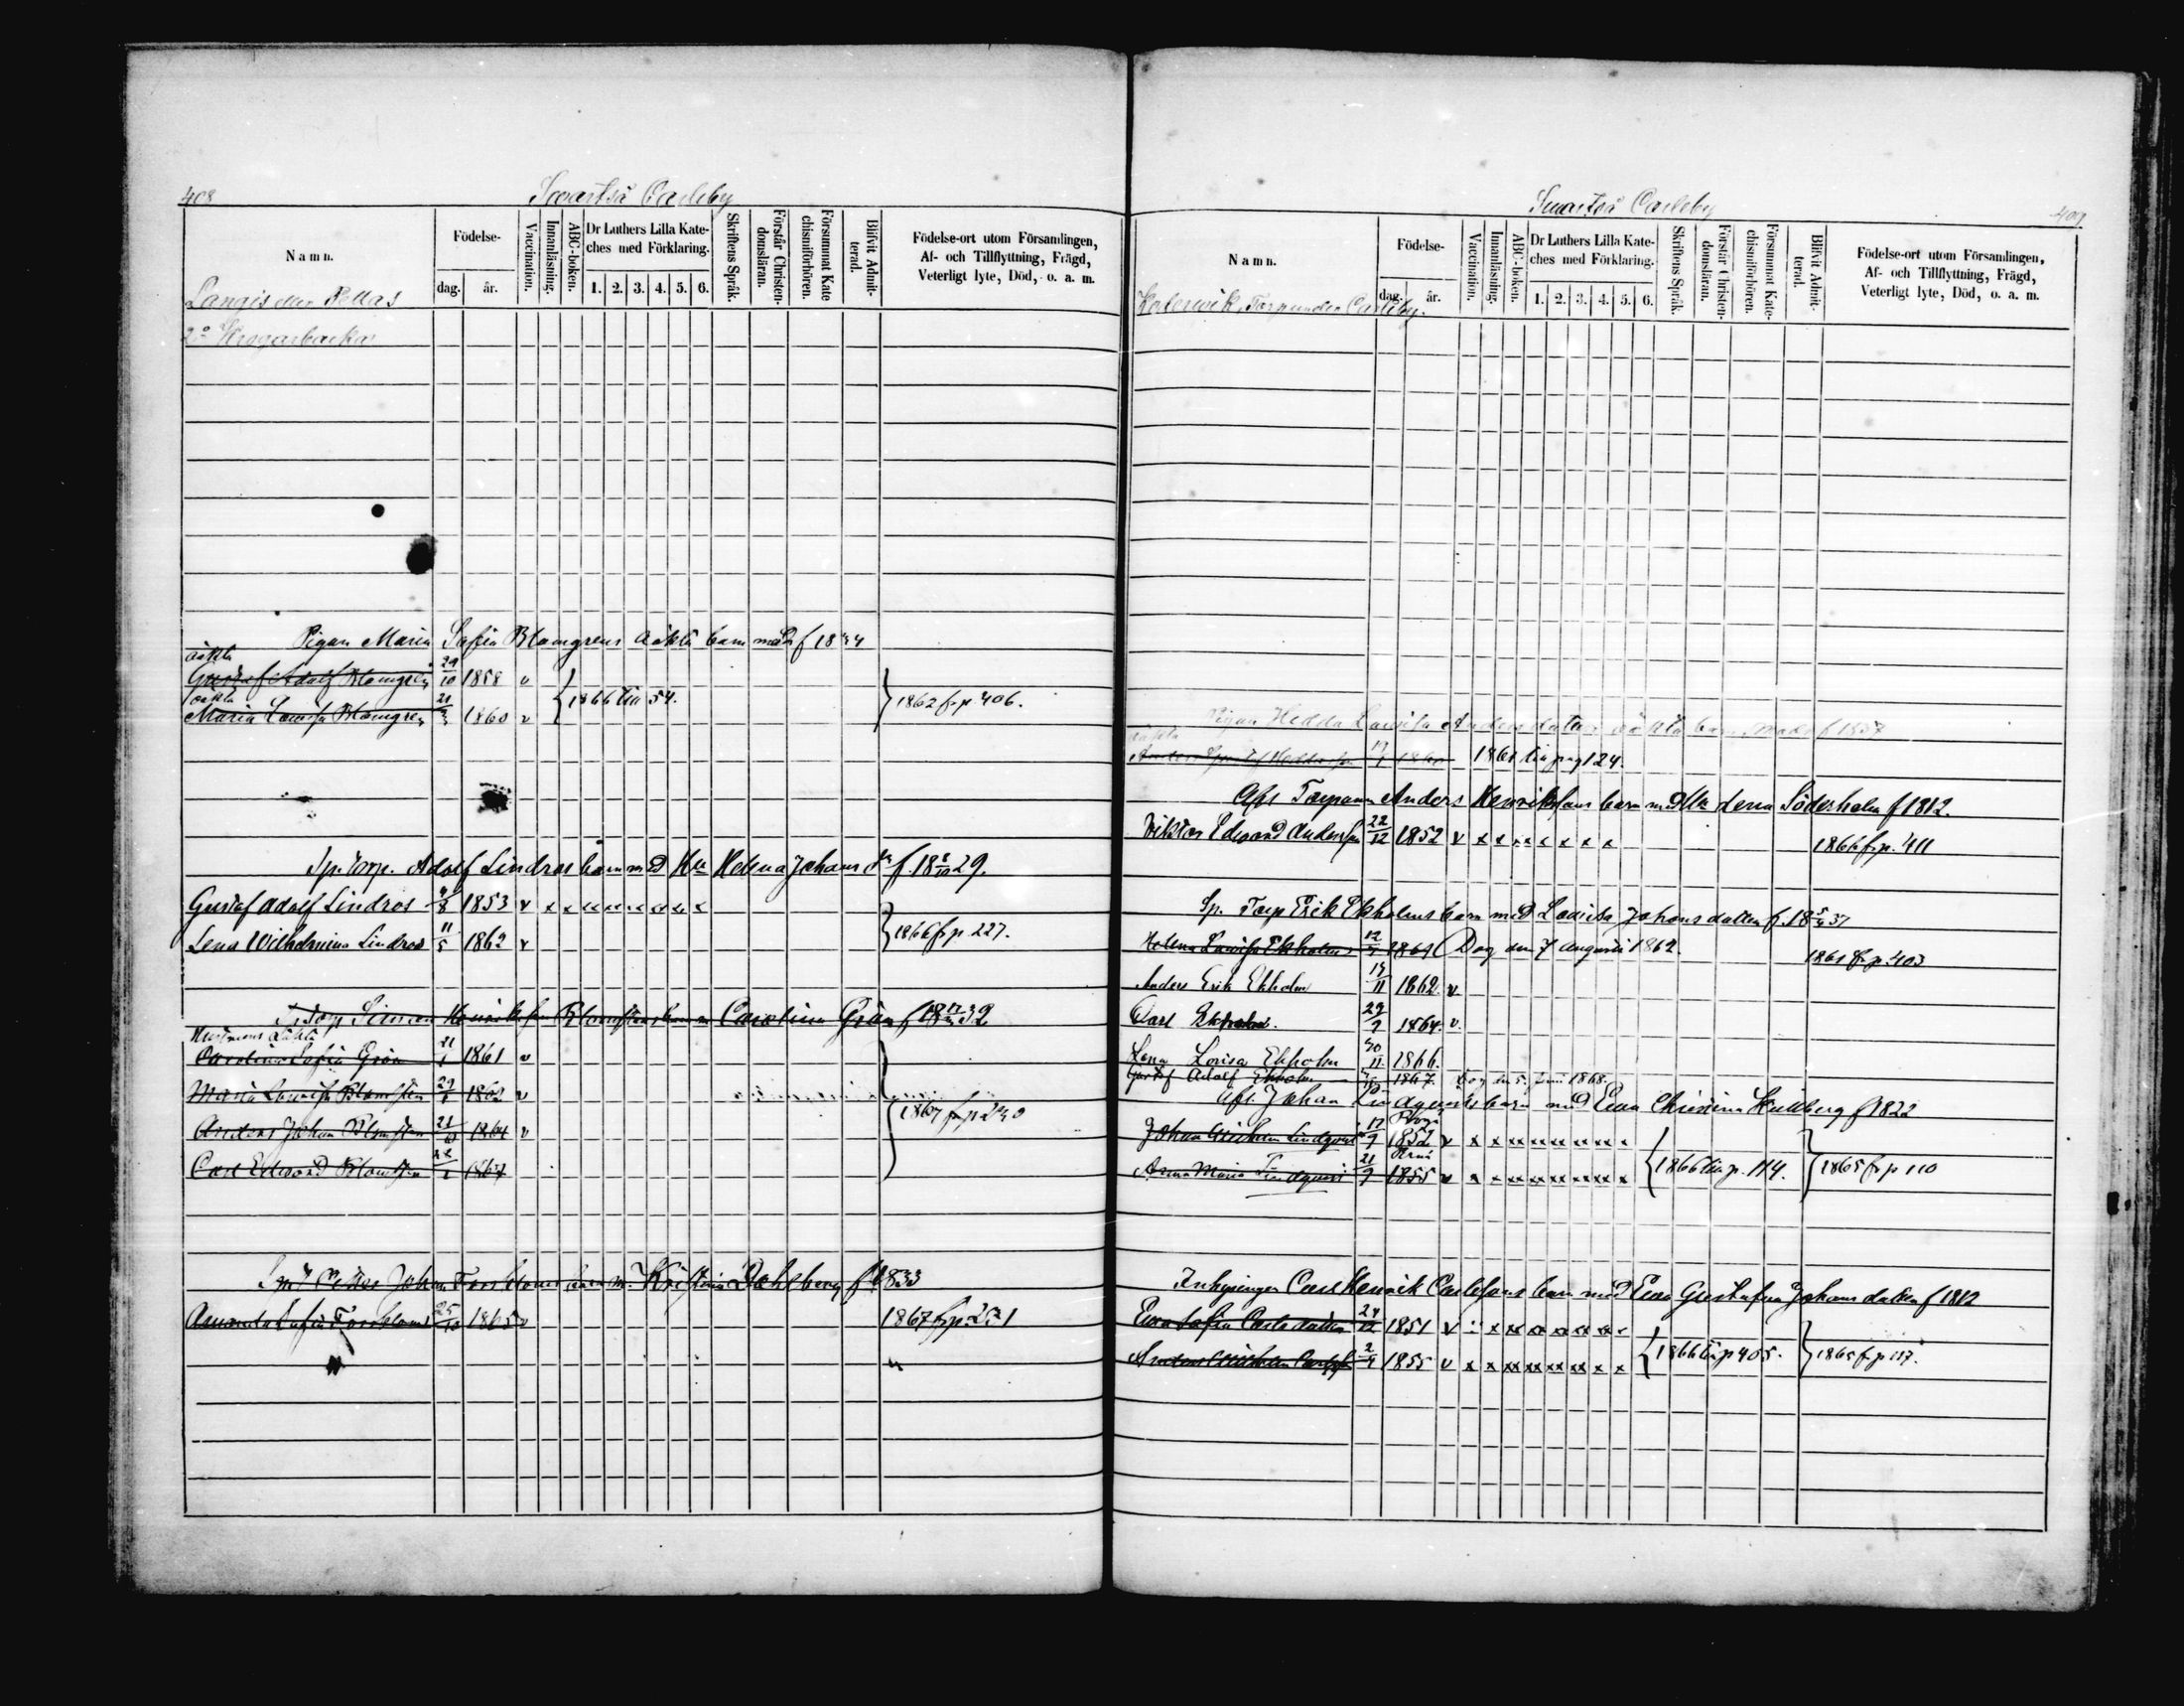 408
Swartså Carleby
Namn.
Födelse-
dag. år.
Vaccination.
Innanläsning.
ABC-boken.
Dr Luthers Lilla Kate-
ches med Förklaring.
1. 2. 3. 4. 5. 6.
Skriftens Språk.
Förstår Christen-
domsläran.
Försummat Kate
chismiförhören.
Blifvit Admit-
terad.
Födelse-ort utom Församlingen,
Af- och Tillflyttning, Frägd,
Veterligt lyte, Död, o. a. m.
Pellas
2o Krogarbacka
Pigan Maria Sofia Blomgrens oäkta barn
oäkta
Gustaf Adolf Blomgren 29/10 1858 v
oäkta
Maria Lovisa Blomgren 1860 v
1866 till 54.
1862 fr p 406.
Adolf Lindros barn med Helena Johans dr f. 18 29.
Gustaf Adolf Lindros 9/8 1853 v x x
Lena Wilhelmina Lindros 11/5 1862 v
1866 fr p 227.
Torp Simon Henriksson Blomsten barn m Carolina Grön f 32
oäkta
Carolina Sofia Grön 1861 v
Maria Lovisa Blomsten 1862 v
Anders Johan Blomsten 1864 v
Carl Edvard Blomsten 1867
1867 fr p 230
Johan Forsbloms barn m. Kristina Dahlberg f 1833
Amanda Sofia Forsblom 25/10 1865 v
1867 fr p 231
409
Swartså Carleby
Namn.
Födelse-
dag. år.
Vaccination.
Innanläsning.
ABC-boken.
Dr Luthers Lilla Kate-
ches med Förklaring.
1. 2. 3. 4. 5. 6.
Skriftens Språk.
Förstår Christen-
domsläran.
Försummat Kate-
chismiförhören.
Blifvit Admit-
terad.
Födelse-ort utom Församlingen,
Af- och Tillflyttning, Frägd,
Veterligt lyte, Död, o. a. m.
Torp under Carleby.
Pigan Hedda Lovisa Andersdatters oäkta barn f 1837
oäkta
1860 1861 till pag 124.
Afl Torparen Anders Henrikssons barn med Lena Söderholm f 1812.
Viktor Edvard Andersson 22/12 1852 v x x x x x x x
1866 fr p. 411
Sp. Torp Erik Ekholms barn med Lovisa Johansdatter f. 18 37
Helena Lovisa Ekholm 1861 Dog den 7 augusti 1862.
1861 fr p. 403
Anders Erik Ekholm 1862. v
Carl Ekholm. 29/9 1864. v.
Lena Lovisa Ekholm 30/11 1866.
Gustaf Adolf Ekholm 1867. Dog den 5. Juni 1868.
Afl. Johan Lindqvists barn med Eva Christina Kullberg f 1822
Johan Wilhelm Lindqvist 17/9 1852 v x x x x x x x x x
Anna Maria Lindqvist 21/9 1855 v x x x x x x x x x
1866 till p. 114.
1865 fr p 110
Inhysingen Carl Henrik Carlssons barn med Eva Gustafva Johansdatter f 1812
Eva Sofia Carlsdatter 24/12 1851 v
Anders Wilhelm Carlsson 2/4 1855 v x x x x x x x x x
1866 till p 405.
1865 fr p 117.